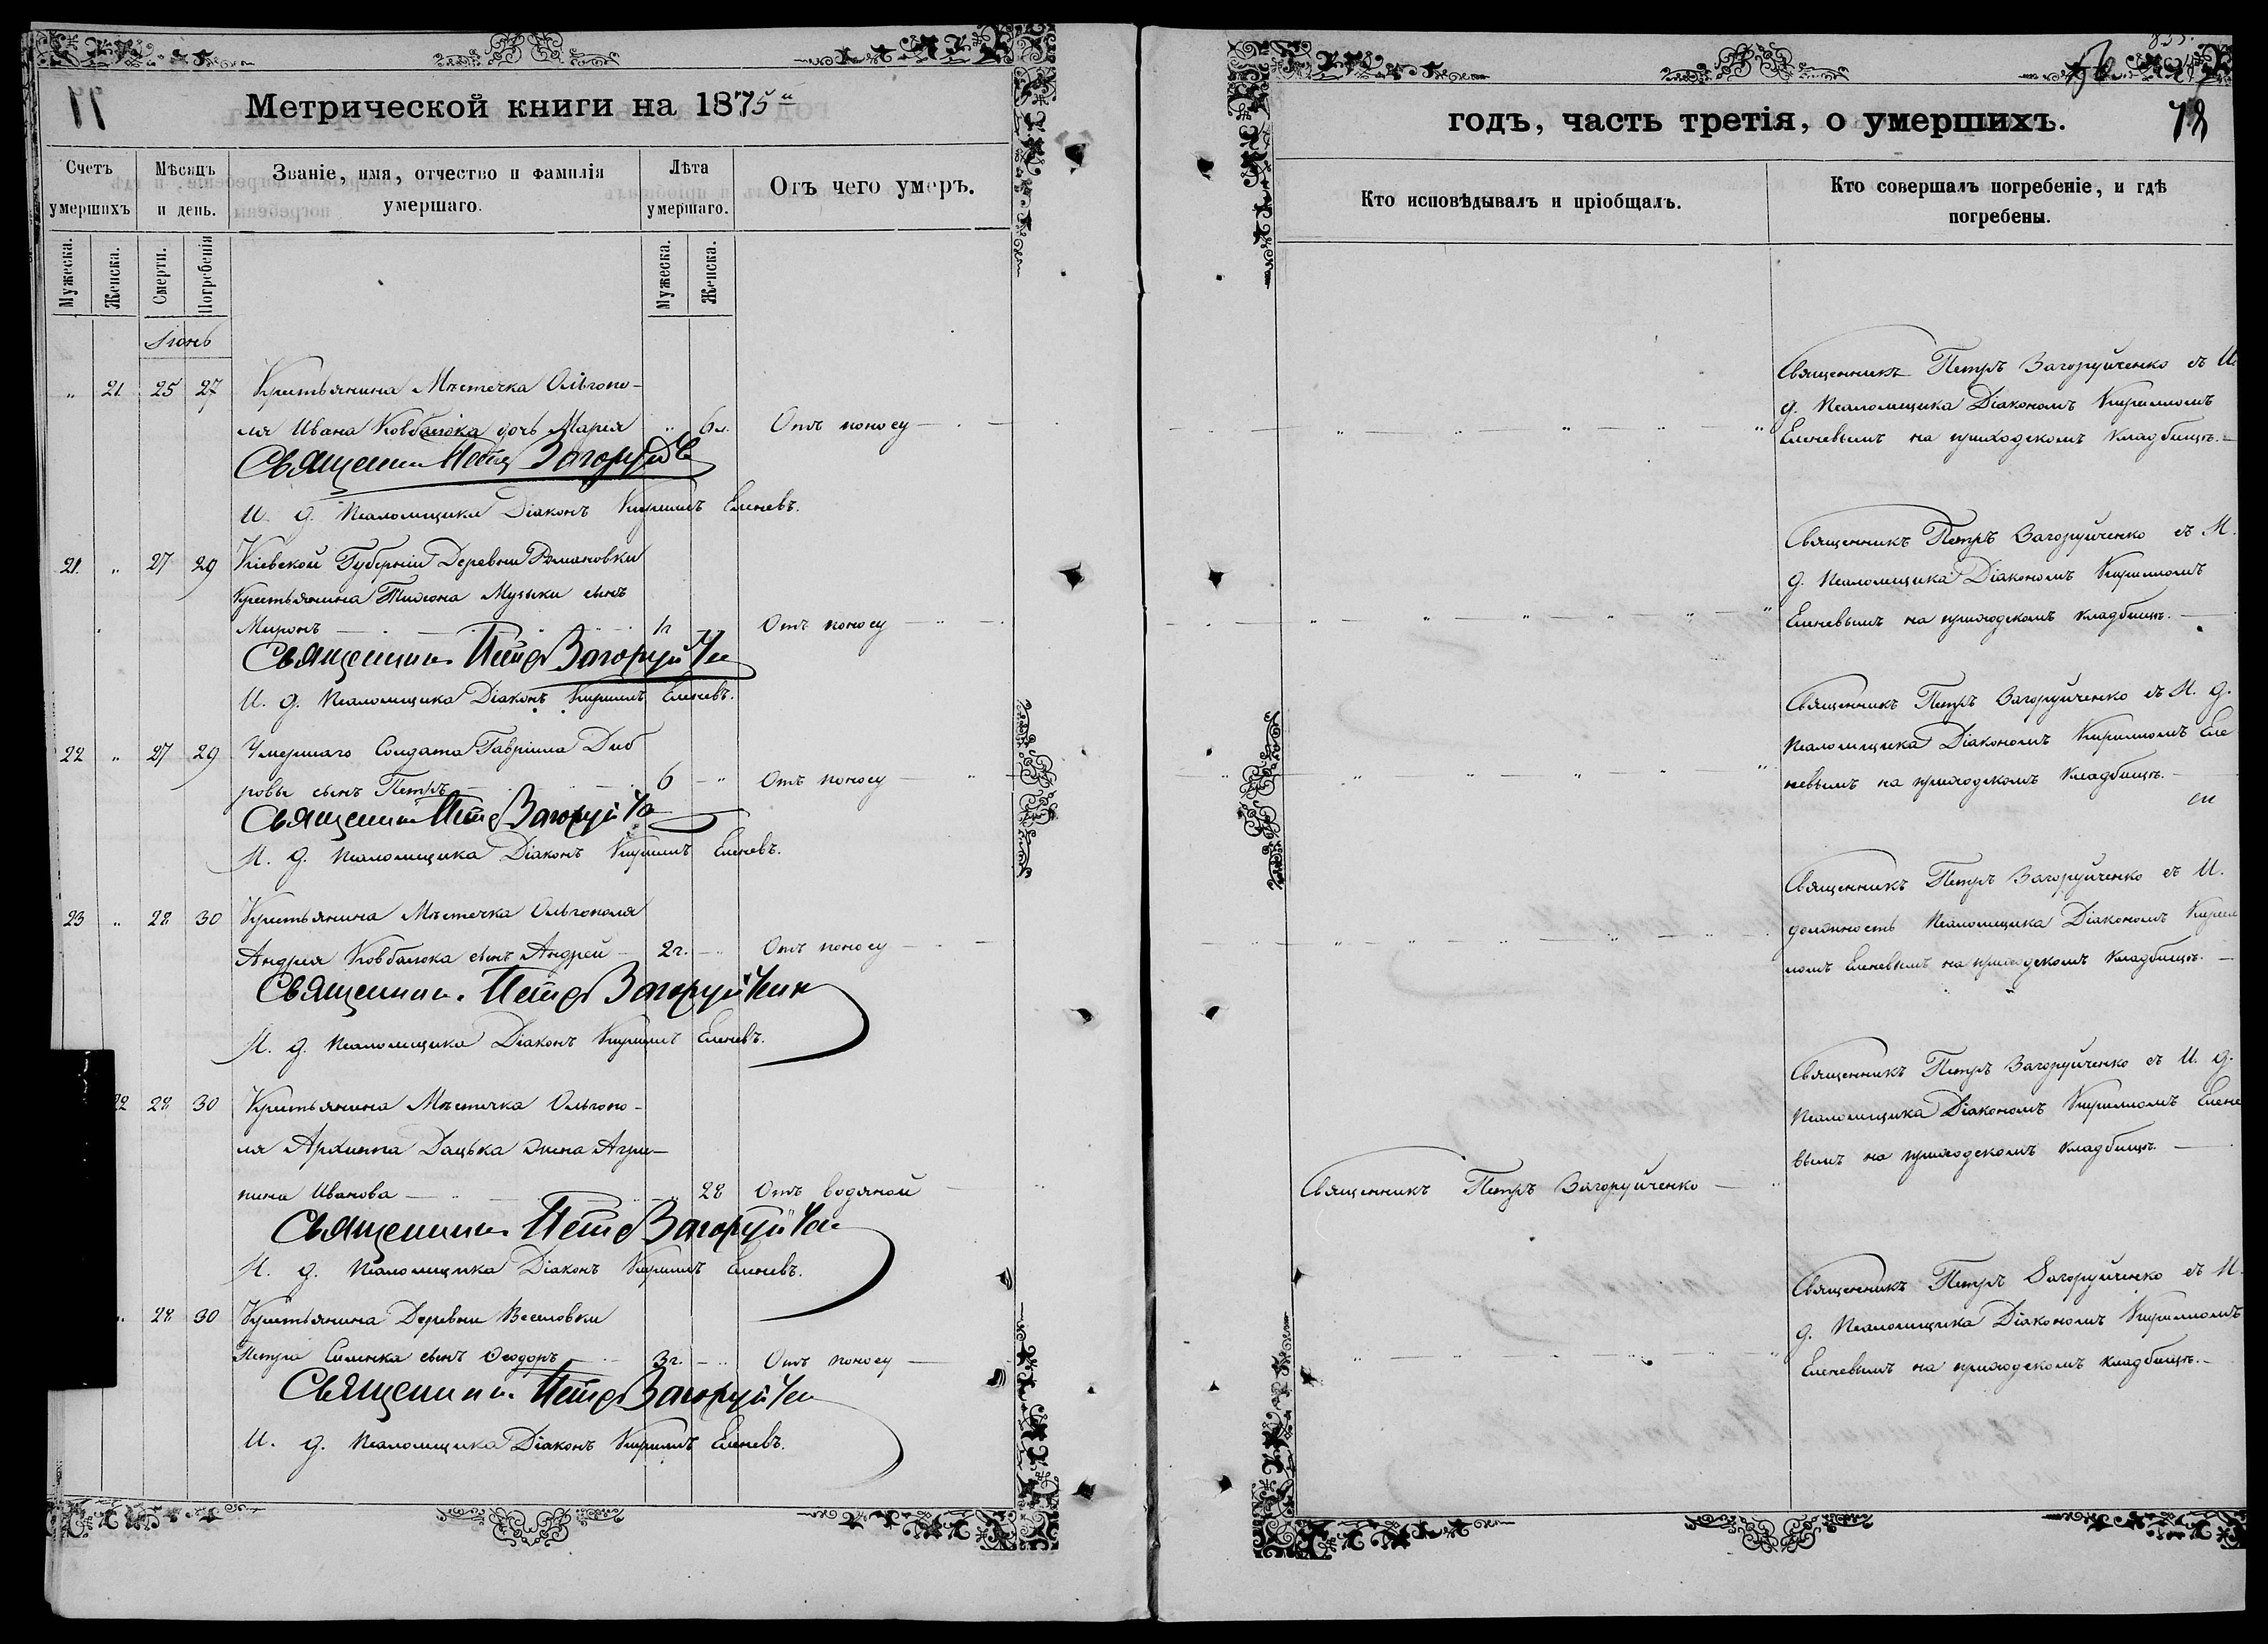 Метрической книги на 1875й
Счетъ умершихъ
Мѣсяцъ и день.
Званіе, имя, отчество и фамилія умершаго.
Лѣта умершаго.
Отъ чего умеръ.
Мужеска. Женска. Смерти. Погребенія Мужеска. Женска.
Іюнь
" 21 25 27 Крестьянина Мѣстечка Ольгопо-
ля Ивана Ковбасюка дочь Марія " 6 Отъ поносу
Священникъ Петръ
И. д. Псаломщика Діаконъ Кириллъ Еленевъ.
21. " 27 29 Кіевской Губерніи Деревни Романовки
Крестьянина Тихона Музыки сынъ
Миронъ 1г Отъ поносу
Священникъ Петръ
И. д. Псаломщика Діаконъ Кириллъ Еленевъ.
22 " 27 29 Умершаго Солдата Гавріила Диб
ровы сынъ Петръ 6 " Отъ поносу
Священникъ Петръ
И. д. Псаломщика Діаконъ Кириллъ Еленевъ.
23 " 28 30 Крестьянина Мѣстечка Ольгополя
Андрея Ковбасюка сынъ Андрей 2г. Отъ поносу
Священникъ Петръ
И. д. Псаломщика Діаконъ Кириллъ Еленевъ.
22 28 30 Крестьянина Мѣстечка Ольгопо-
ля Архиппа Дацька жена Агри-
пина Иванова 28 Отъ водяной
Священникъ Петръ
И. д. Псаломщика Діаконъ Кириллъ Еленевъ.
" 28 30 Крестьянина Деревни Веселовки
Петра сынъ Ѳеодоръ 3г. Отъ поносу
Священникъ Петръ
И. д. Псаломщика Діаконъ Кириллъ Еленевъ.
годъ, часть третія, о умершихъ. 78
Кто исповѣдывалъ и пріобщалъ.
Кто совершалъ погребеніе, и гдѣ погребены.
Священникъ Петръ Загоруйченко съ И.
д. Псаломщика Діакономъ Кирилломъ
Еленевымъ на приходскомъ кладбищѣ.
Священникъ Петръ Загоруйченко съ И.
д. Псаломщика Діакономъ Кирилломъ
Еленевымъ на приходскомъ кладбищѣ.
Священникъ Петръ Загоруйченко съ И. д.
Псаломщика Діакономъ Кирилломъ Еле
невымъ на приходскомъ кладбищѣ.
Священникъ Петръ Загоруйченко съ И.
должность Псаломщика Діакономъ Кирил
ломъ Еленевымъ на приходскомъ кладбищѣ.
Священникъ Петръ Загоруйченко съ И. д.
Псаломщика Діакономъ Кирилломъ Елене
вымъ на приходскомъ кладбищѣ.
Священникъ Петръ Загоруйченко
Священникъ Петръ Загоруйченко съ И.
д. Псаломщика Діакономъ Кирилломъ
Еленевымъ на приходскомъ кладбищѣ.